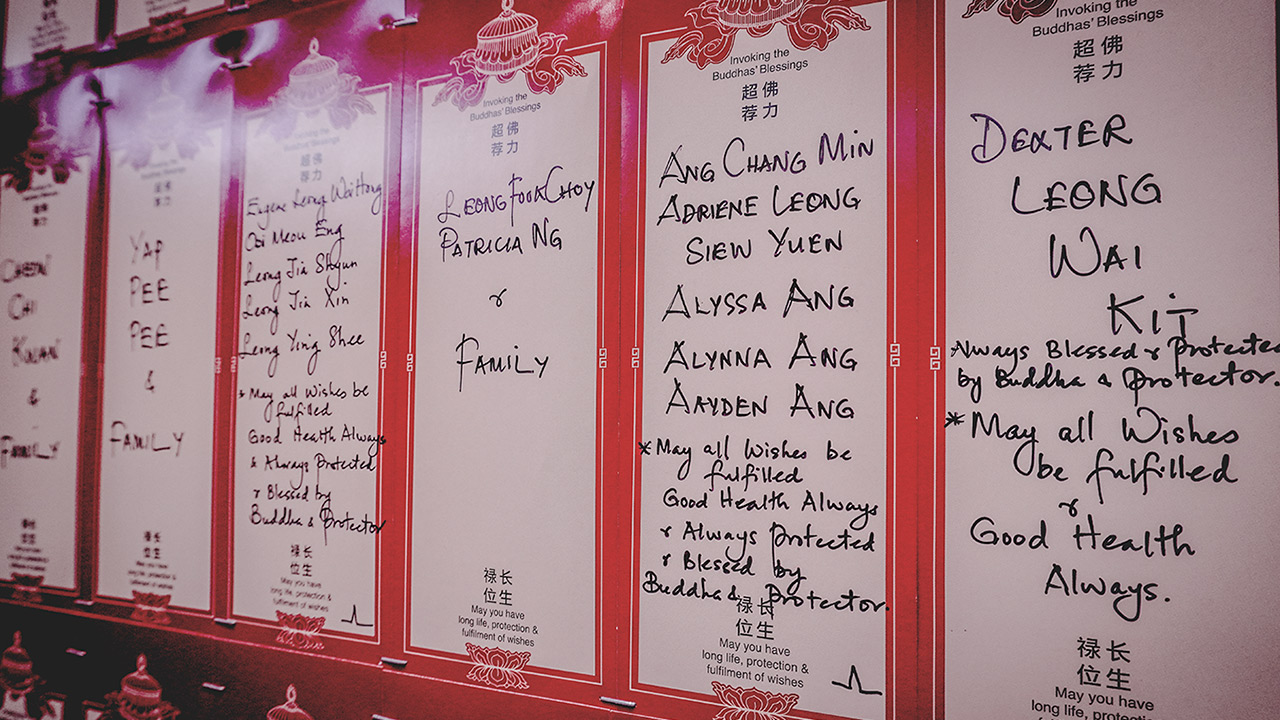 CHEON
CHI
KWAN
&
FAMILY
YAP
PEE
PEE
&
FAMILY
禄长
位生
Invoking the
Buddhas' Blessings
超佛
荐力
Eugene Leong Wai Hong
Ooi Meou Eng
Leong Jia Shyun
Leong Jia Xin
Leong Ying Shee
* May all Wishes be
fulfilled
Good Health Always
& Always Protected
& Blessed by
Buddha & Protector
禄长
位生
May you have
long life, protection &
fulfilment of wishes
Invoking the
Buddhas' Blessings
超佛
荐力
LEONG FOOK CHOY
PATRICIA NG
&
FAMILY
禄长
位生
May you have
long life, protection &
fulfilment of wishes
Invoking the
Buddhas' Blessings
超佛
荐力
ANG CHANG MIN
ADRIENE LEONG
SIEW YUEN
ALYSSA ANG
ALYNNA ANG
AAYDEN ANG
* May all Wishes be
fulfilled
Good Health Always
& Always Protected
& Blessed by
Buddha & Protector.
禄长
位生
May you have
long life, protection &
fulfilment of wishes
Invoking the
Buddhas' Blessings
超佛
荐力
DEXTER
LEONG
WAI
KIT
Always Blessed & Protected
by Buddha & Protector.
* May all Wishes
be fulfilled
&
Good Health
Always.
禄长
位生
May you have
long life, protection